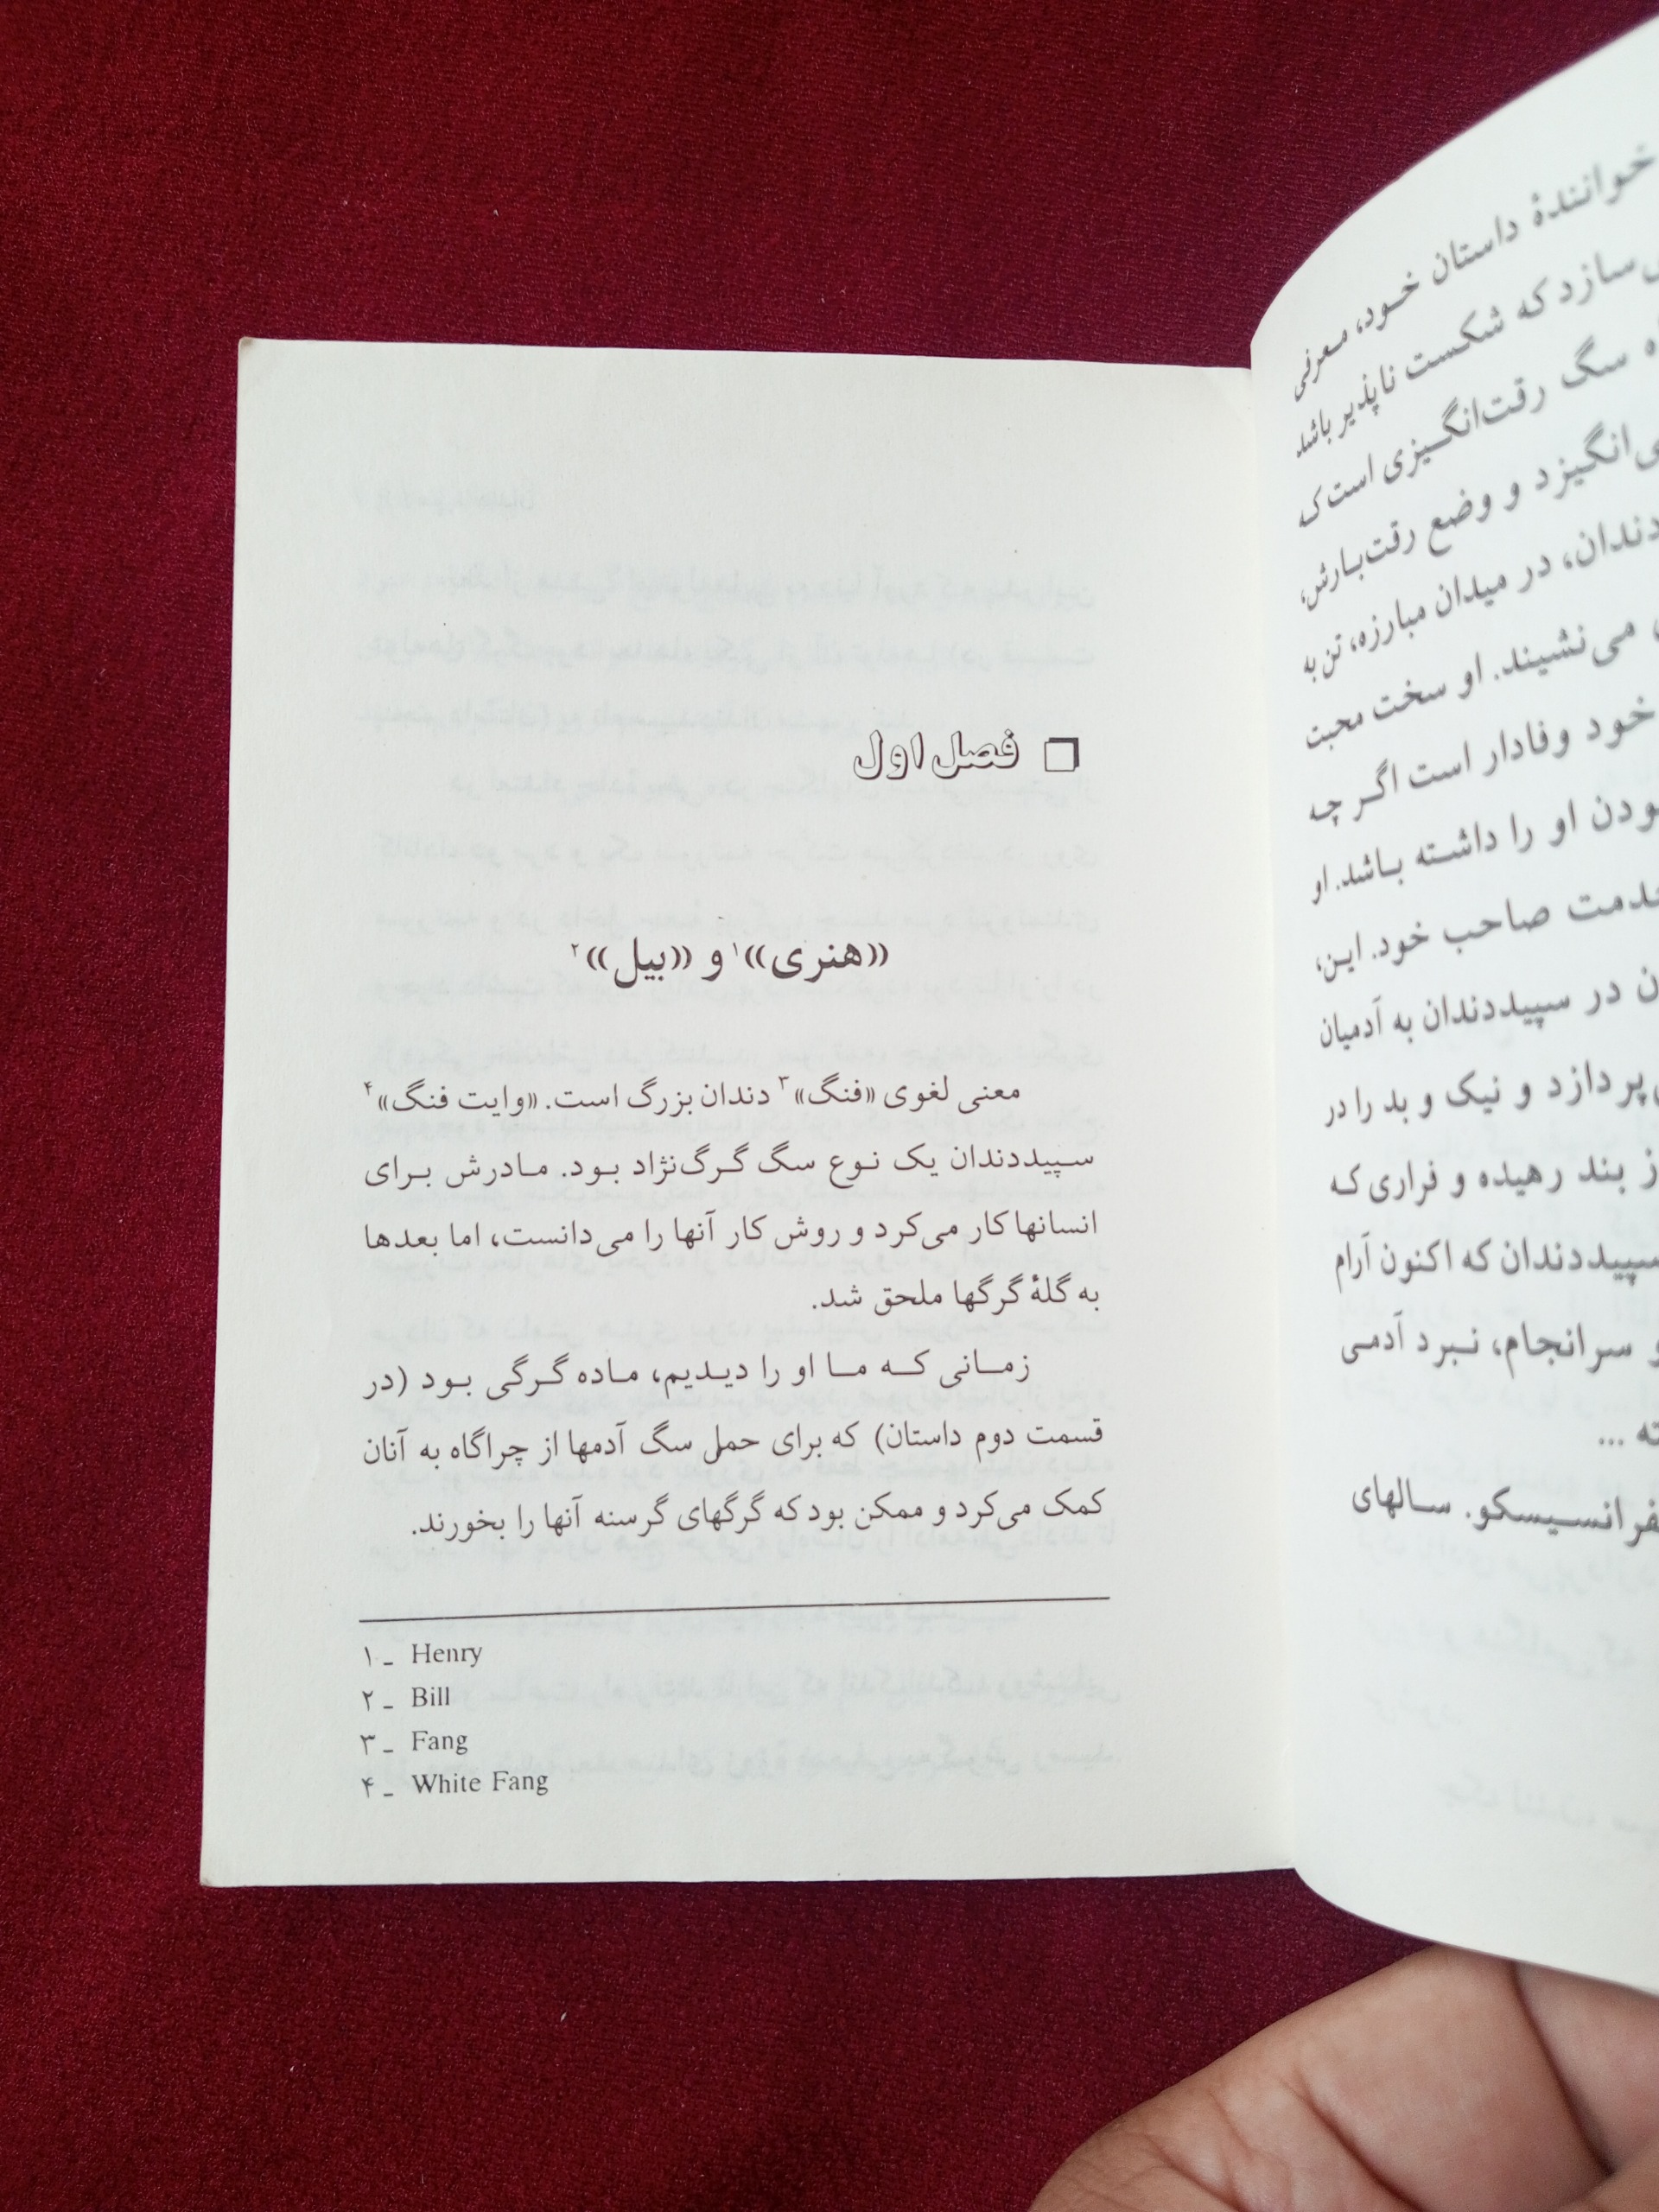 خوانندهٔ داستان خود، معرفی
سازد که شکست ناپذیر باشد
سگ رقت‌انگیزی است که
می‌انگیزد و وضع رقت‌بارش،
دندان، در میدان مبارزه، تن به
می‌نشیند. او سخت محبت
خود وفادار است اگر چه
او را داشته باشد. او
صاحب خود. این،
در سپیددندان به آدمیان
و نیک و بد را در
بند رهیده و فراری که
سپیددندان که اکنون آرام
سرانجام، نبرد آدمی
...
سالهای
□ فصل اول
«هنری»۱ و «بیل»۲
معنی لغوی «فنگ»۳ دندان بزرگ است. «وایت فنگ»۴
سپیددندان یک نوع سگ گرگ‌نژاد بود. مادرش برای
انسانها کار می‌کرد و روش کار آنها را می‌دانست، اما بعدها
به گلهٔ گرگها ملحق شد.
زمانی که ما او را دیدیم، ماده گرگی بود (در
قسمت دوم داستان) که برای حمل سگ آدمها از چراگاه به آنان
کمک می‌کرد و ممکن بود که گرگهای گرسنه آنها را بخورند.
۱ـ Henry
۲ـ Bill
۳ـ Fang
۴ـ White Fang